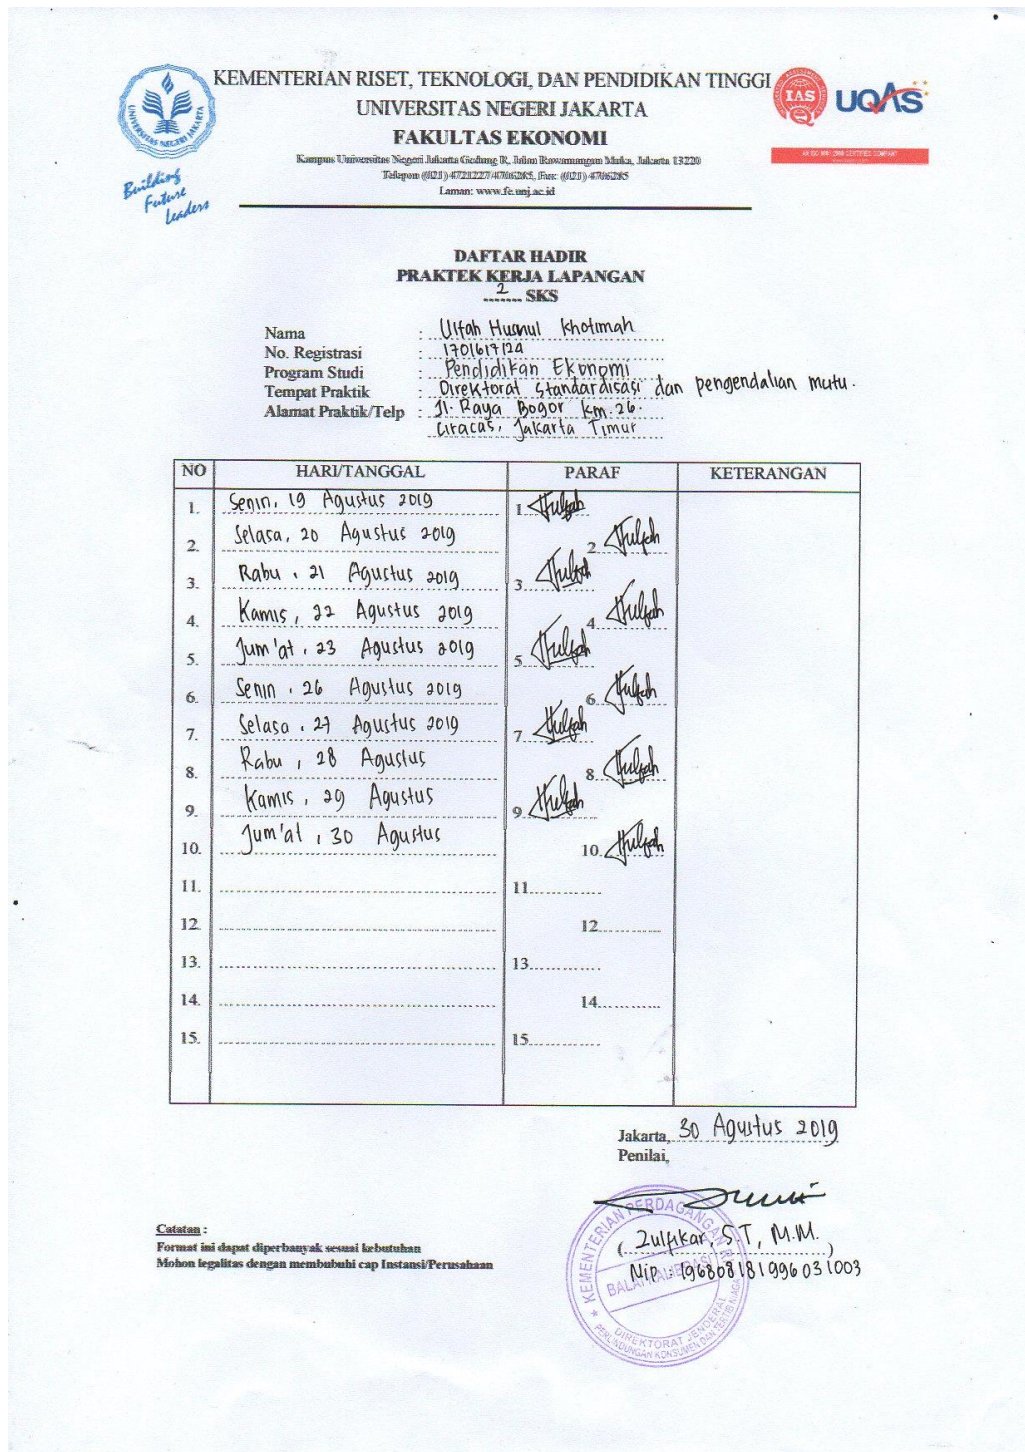 KEMENTERIAN RISET, TEKNOLOGI, DAN PENDIDIKAN TINGGI
UNIVERSITAS NEGERI JAKARTA
FAKULTAS EKONOMI
Kampus Universitas Negeri Jakarta Gedung R, Jalan Rawamangun Muka, Jakarta 13220
Telepon (021) 4721227/4706285, Fax: (021) 4706285
Laman: www.fe.unj.ac.id
UNIVERSITAS NEGERI JAKARTA
Building
Future
Leaders
IAS
UQAS
AN ISO 9001:2008 CERTIFIED COMPANY
DAFTAR HADIR
PRAKTEK KERJA LAPANGAN
2 SKS
Nama : Ulfah Husnul Khotimah
No. Registrasi : 1701617124
Program Studi : Pendidikan Ekonomi
Tempat Praktik : Direktorat Standardisasi dan pengendalian mutu.
Alamat Praktik/Telp : Jl. Raya Bogor Km. 26.
Ciracas, Jakarta Timur
NO HARI/TANGGAL PARAF KETERANGAN
1. Senin, 19 Agustus 2019 1
2. Selasa, 20 Agustus 2019 2
3. Rabu, 21 Agustus 2019 3
4. Kamis, 22 Agustus 2019 4
5. Jum'at, 23 Agustus 2019 5
6. Senin, 26 Agustus 2019 6
7. Selasa, 27 Agustus 2019 7
8. Rabu, 28 Agustus 8
9. Kamis, 29 Agustus 9
10. Jum'at, 30 Agustus 10
11. 11
12. 12
13. 13
14. 14
15. 15
Jakarta, 30 Agustus 2019
Penilai,
(Zulfikar, S.T, M.M.)
Nip: 196808181996031003
KEMENTERIAN PERDAGANGAN
BALAI KALIBRASI
DIREKTORAT JENDERAL
PERLINDUNGAN KONSUMEN DAN TERTIB NIAGA
Catatan :
Format ini dapat diperbanyak sesuai kebutuhan
Mohon legalitas dengan membubuhi cap Instansi/Perusahaan